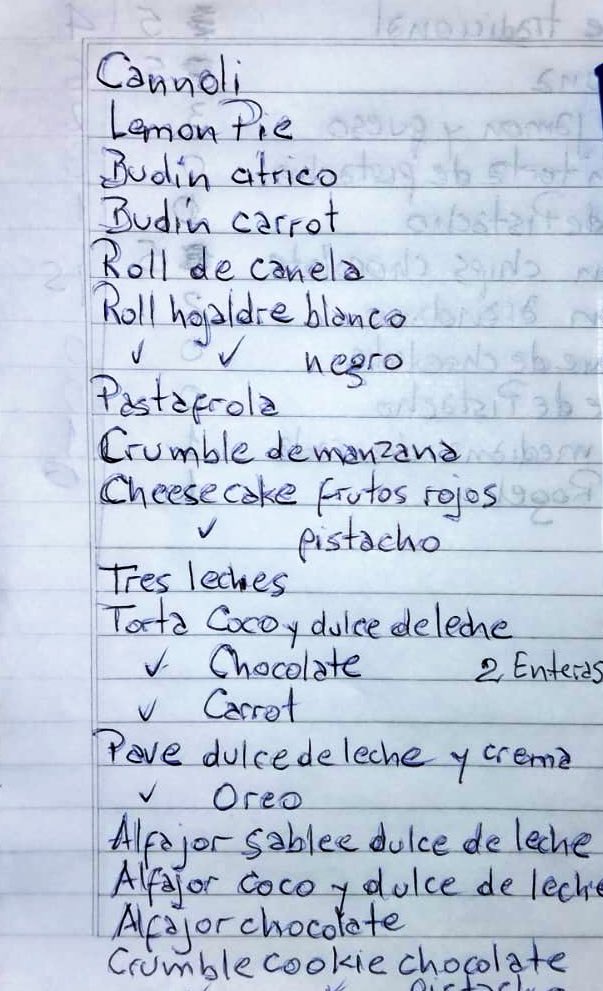 Cannoli
Lemon Pie
Budín citrico
Budín carrot
Roll de canela
Roll hojaldre blanco
✓ ✓ negro
Pastafrola
Crumble de manzana
Cheese cake frutos rojos
✓ pistacho
Tres leches
Torta Coco y dulce de leche
✓ Chocolate 2 Enteras
✓ Carrot
Pave dulce de leche y crema
✓ Oreo
Alfajor sablee dulce de leche
Alfajor coco y dulce de leche
Alfajor chocolate
Crumble cookie chocolate